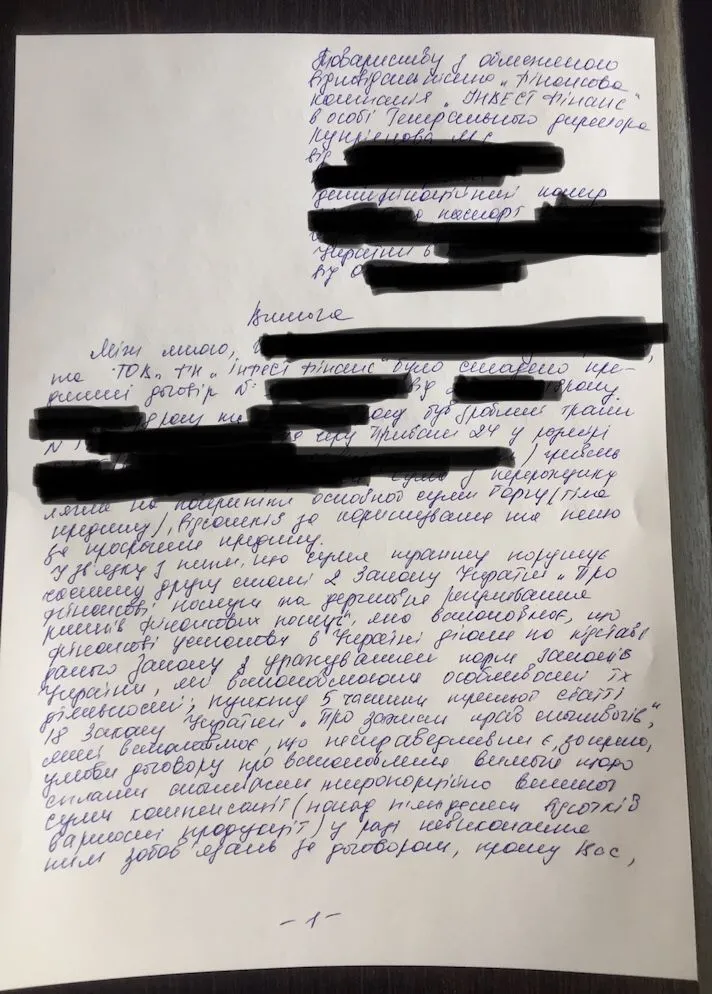 Товариству з обмеженою
відповідальністю „Фінансова
компанія „ІНВЕСТ Фінанс"
в особі Генерального директора
Купрієнова М.С.
від
номер
паспорт
України в
від
Вимога
Між мною,
та ТОВ „ФК „Інвест Фінанс" було складено кре-
дитний договір №: від року.
року на
№ Приват 24 у розмірі
)
сума з перерахунку
лягла на повернення основної суми боргу (тіла
кредиту), відсотків за користування та пеню
за прострочення кредиту.
У зв'язку з тим, що сума порушує
частину другу статті 2 Закону України „Про
фінансові послуги та державне регулювання
ринків фінансових послуг", яка встановлює, що
фінансові установи в Україні діють на підставі
даного Закону з урахуванням норм законів
України, які встановлюють особливості їх
діяльності; пункту 5 частини третьої статті
18 Закону України „Про захист прав споживачів",
який встановлює, що несправедливими є, зокрема,
умови договору про встановлення вимоги щодо
сплати споживачем непропорційно великої
суми компенсації (понад п'ятдесят відсотків
вартості продукції) у разі невиконання
ним зобов'язань за договором, прошу Вас,
- 1 -